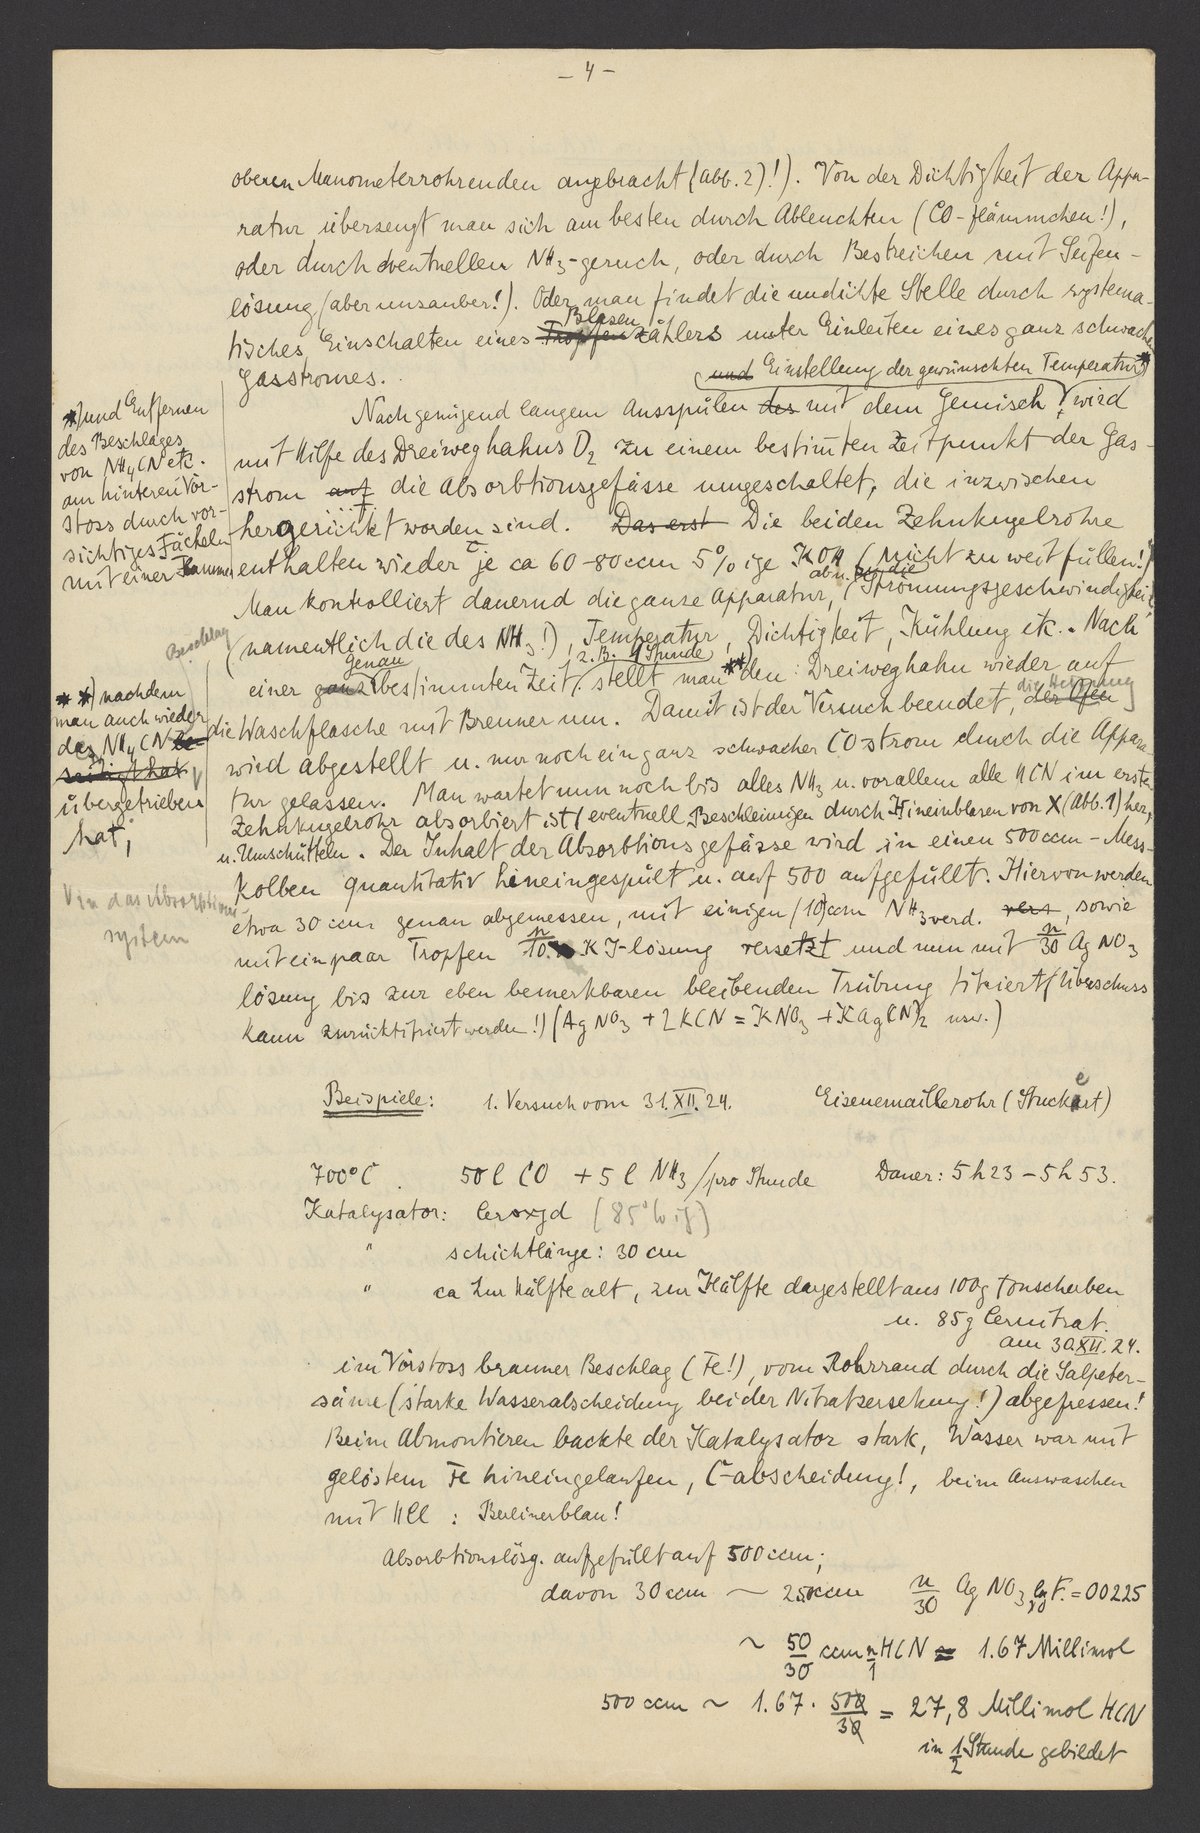 – 4 –
oberen Manometerrohrenden angebracht (Abb. 2)!). Von der Dichtigkeit der Appa-
ratur überzeugt man sich am besten durch Ableuchten (CO-flämmchen!),
oder durch eventuellen NH3-geruch, oder durch Bestreichen mit Seifen-
lösung (aber unsauber!). Oder man findet die undichte Stelle durch systema-
Blasen
tisches Einschalten eines Tropfenzählers unter Einleiten eines ganz schwachen
Gasstromes.
und Einstellung der gewünschten Temperatur *)
Nach genügend langem Ausspülen des mit dem Gemisch, wird
mit Hilfe des Dreiweghahns D2 zu einem bestimten Zeitpunkt der Gas-
strom auf die Absorbtionsgefässe umgeschaltet, die inzwischen
hergerichtet worden sind. Das erst Die beiden Zehnkugelrohre
enthalten wieder je ca 60-80 ccm 5%ige KOH (nicht zu weit füllen!)
*) und Entfernen
des Beschlages
von NH4CN etc.
am hinteren Vor-
stoss durch vor-
sichtiges Fächeln
mit einer Flamme
Man kontrolliert dauernd die ganze Apparatur, Strömungsgeschwindigkeit
(namentlich die des NH3!), Temperatur, Dichtigkeit, Kühlung etc. Nach
genau z.B. 1 Stunde
einer ganz bestimmten Zeit stellt man **) den Dreiweghahn wieder auf
die Heizung
die Waschflasche mit Brenner um. Damit ist der Versuch beendet, der Ofen
wird abgestellt u. nur noch ein ganz schwacher CO-strom durch die Appara-
tur gelassen. Man wartet nun noch bis alles NH3 u. vor allem alle HCN im ersten
Zehnkugelrohr absorbiert ist (eventuell Beschleunigen durch Hineinblasen von X (Abb. 1) her,
u. Umschütteln. Der Inhalt der Absorbtionsgefässe wird in einen 500 ccm-Mess-
Beschlag
**) nachdem
man auch wieder
das NH4CN be-
seitigt hat
übergetrieben
hat;
V in das Absorptions-
system
kolben quantitativ hineingespült u. auf 500 aufgefüllt. Hiervon werden
etwa 30 ccm genau abgemessen, mit einigen (10) ccm NH3 verd. vers, sowie
mit ein paar Tropfen n/10 KJ-lösung versetzt und nun mit n/30 AgNO3
lösung bis zur eben bemerkbaren bleibenden Trübung titriert (Überschuss
kann zurücktitriert werden!) (AgNO3 + 2KCN = KNO3 + KAg(CN)2 usw.)
Beispiele: 1. Versuch vom 31.XII.24. Eisenemaillerohr (Stuckert)
700°C. 50 l CO + 5 l NH3/pro Stunde Dauer: 5h23 – 5h53.
Katalysator: Ceroxyd (85%ig)
" schichtlänge: 30 cm
" ca zur Hälfte alt, zur Hälfte dargestellt aus 100g Tonscherben
u. 85g Cernitrat.
am 30.XII.24.
im Vorstoss brauner Beschlag (Fe!), vom Rohrrand durch die Salpeter-
säure (starke Wasserabscheidung bei der Nitratzersetzung!) abgefressen!
Beim Abmontieren backte der Katalysator stark, Wasser war mit
gelöstem Fe hineingelaufen, C-abscheidung!, beim Auswaschen
mit HCl : Berlinerblau!
Absorbtionslösg. aufgefüllt auf 500 ccm;
davon 30 ccm ~ 25 ccm n/30 AgNO3, F. = 00225
~ 50/30 ccm n/1 HCN = 1.67 Millimol
500 ccm ~ 1.67 · 500/30 = 27,8 Millimol HCN
in 1/2 Stunde gebildet